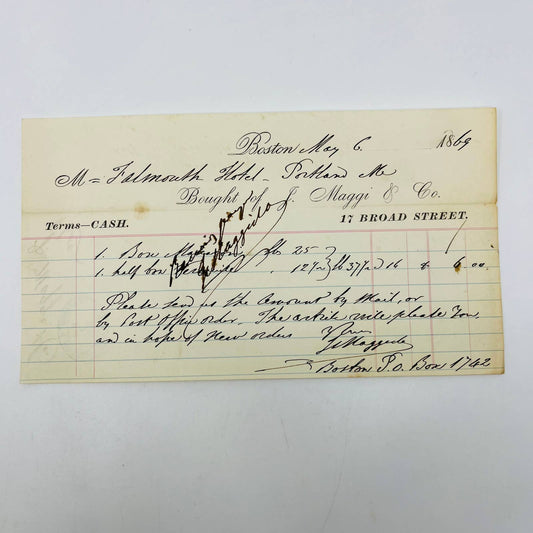 Boston May 6 1869
M= Falmouth Hotel - Portland Me
Bought of J. Maggi & Co.
Terms—CASH. 17 BROAD STREET.
1. Box lbs 25
1. half box 12½ lb 37½ 16 6 6.00
Please send us the amount by Mail, or
by Post Office order. The article will please You
and in hope of New orders Yours
Boston P.O. Box 1742